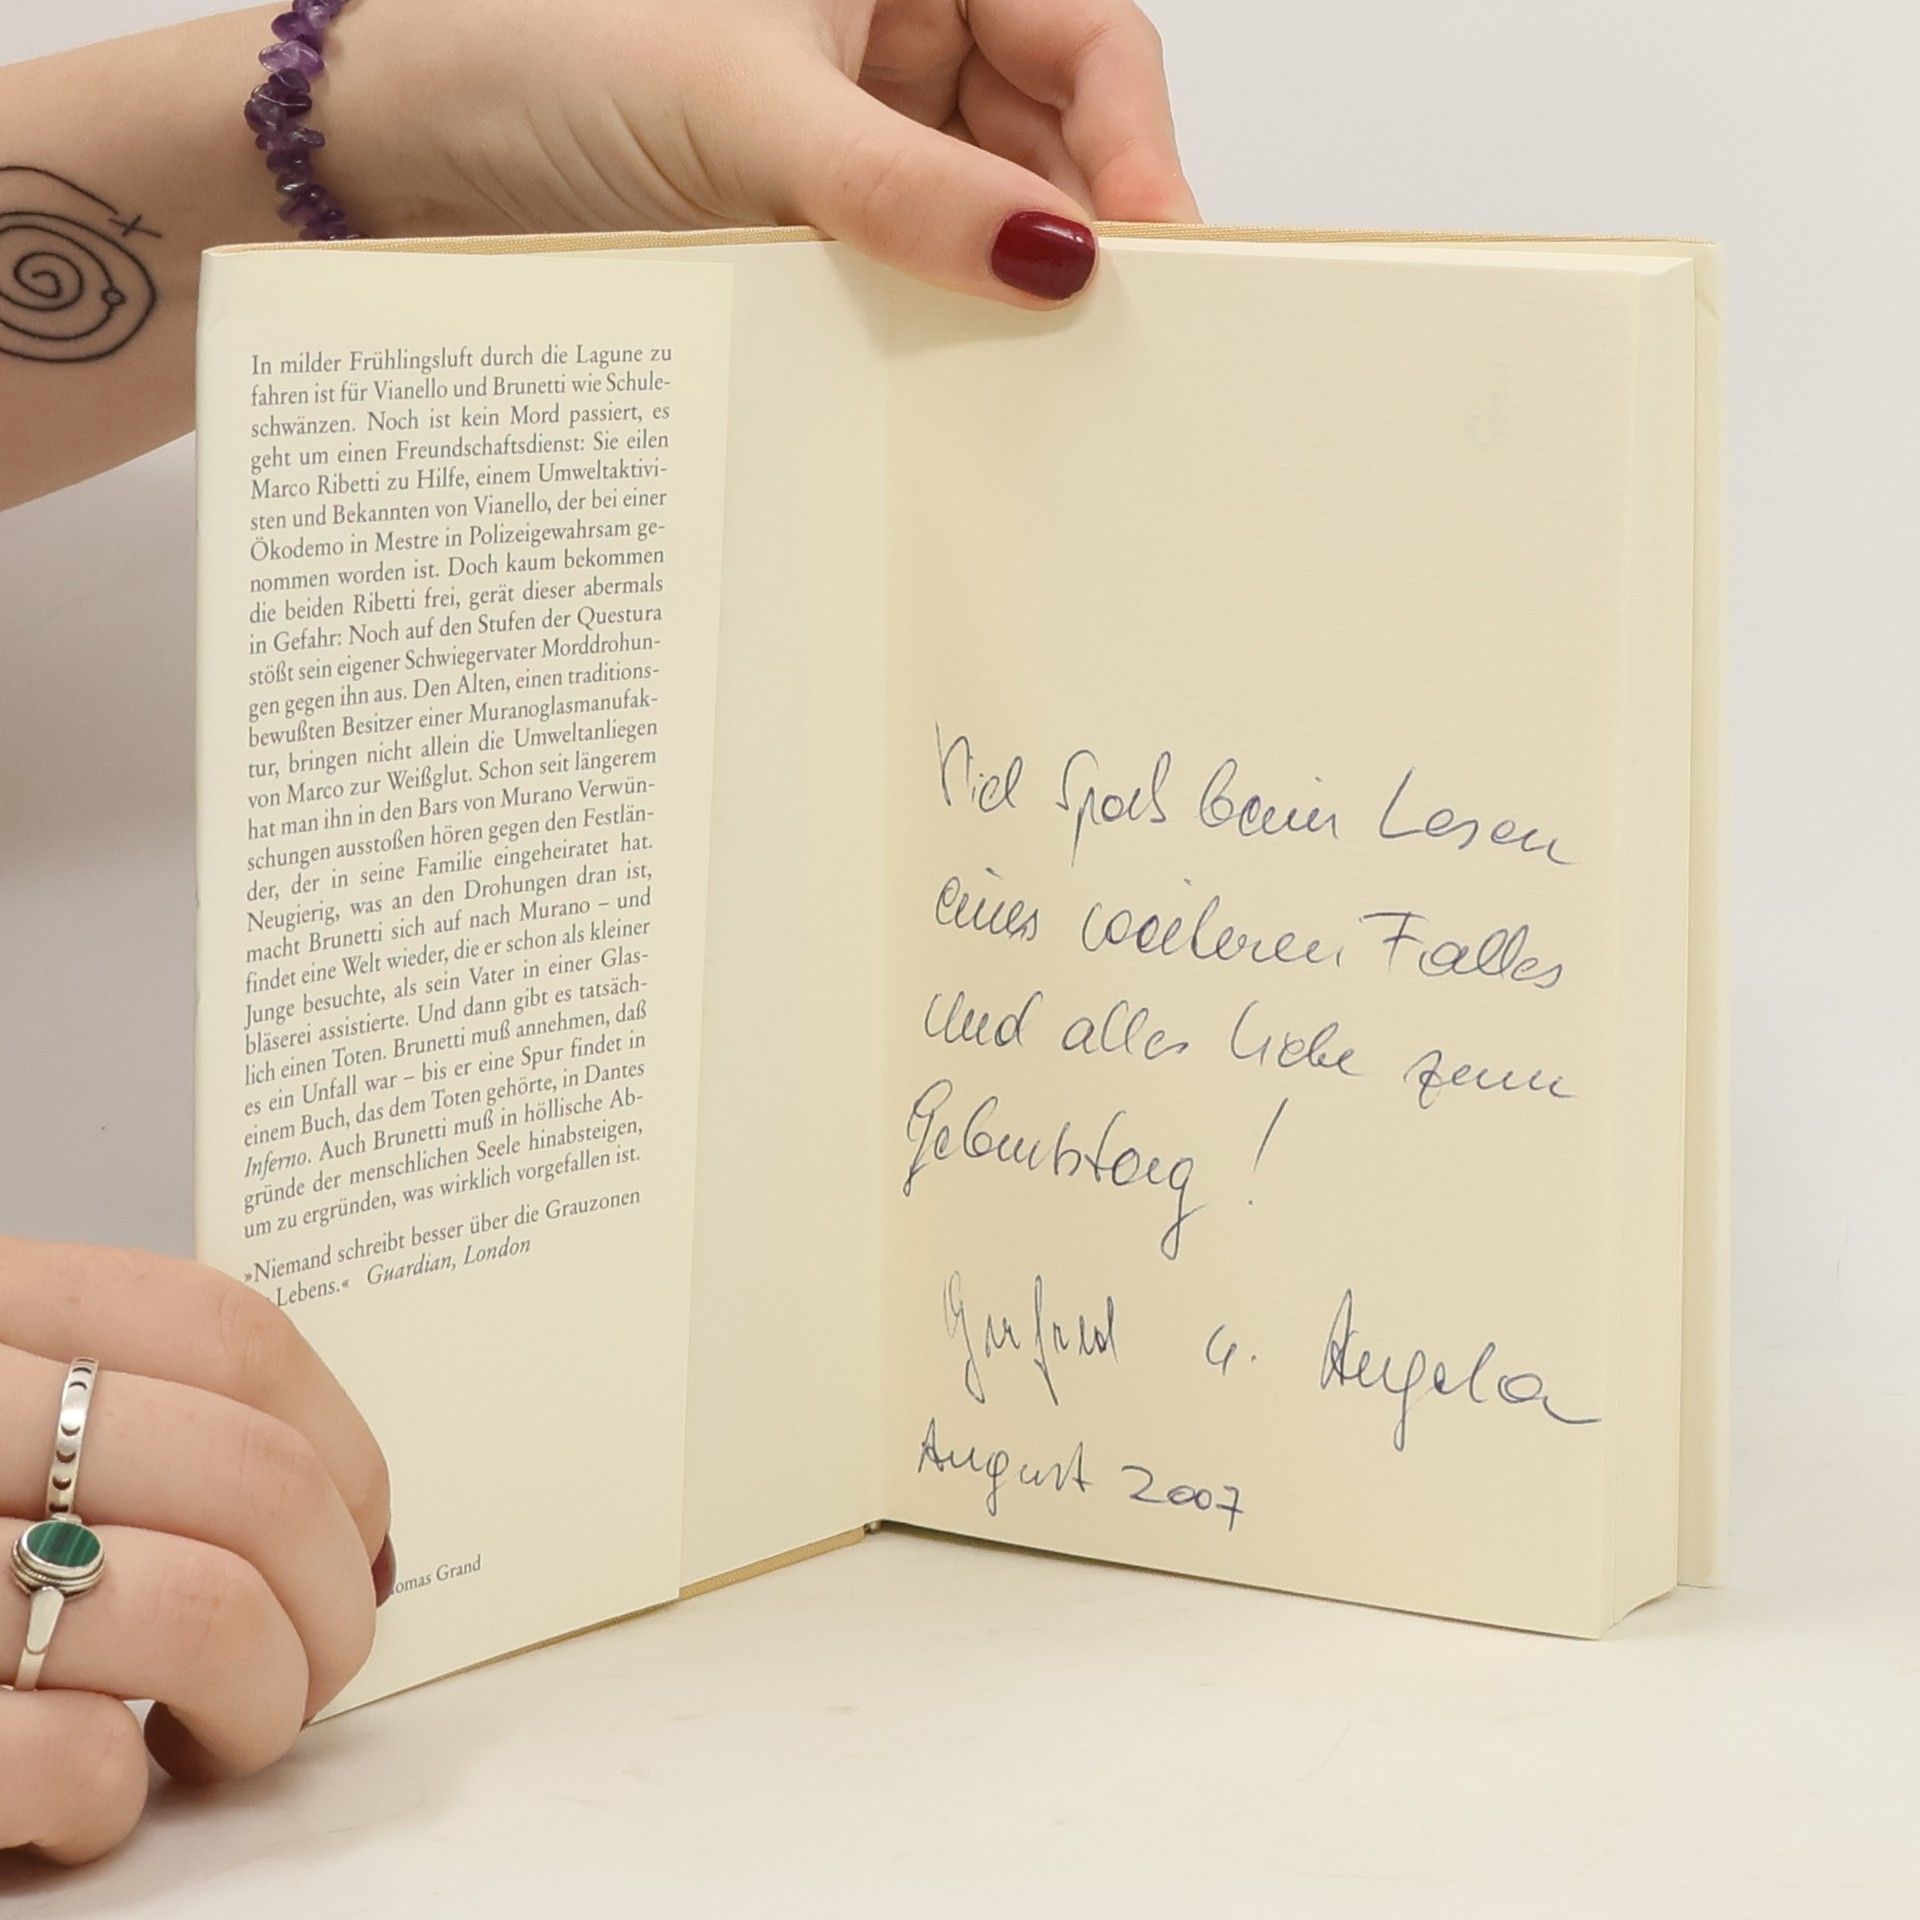 In milder Frühlingsluft durch die Lagune zu
fahren ist für Vianello und Brunetti wie Schule-
schwänzen. Noch ist kein Mord passiert, es
geht um einen Freundschaftsdienst: Sie eilen
Marco Ribetti zu Hilfe, einem Umweltaktivi-
sten und Bekannten von Vianello, der bei einer
Ökodemo in Mestre in Polizeigewahrsam ge-
nommen worden ist. Doch kaum bekommen
die beiden Ribetti frei, gerät dieser abermals
in Gefahr: Noch auf den Stufen der Questura
stößt sein eigener Schwiegervater Morddrohun-
gen gegen ihn aus. Den Alten, einen traditions-
bewußten Besitzer einer Muranoglasmanufak-
tur, bringen nicht allein die Umweltanliegen
von Marco zur Weißglut. Schon seit längerem
hat man ihn in den Bars von Murano Verwün-
schungen ausstoßen hören gegen den Festlän-
der, der in seine Familie eingeheiratet hat.
Neugierig, was an den Drohungen dran ist,
macht Brunetti sich auf nach Murano – und
findet eine Welt wieder, die er schon als kleiner
Junge besuchte, als sein Vater in einer Glas-
bläserei assistierte. Und dann gibt es tatsäch-
lich einen Toten. Brunetti muß annehmen, daß
es ein Unfall war – bis er eine Spur findet in
einem Buch, das dem Toten gehörte, in Dantes
Inferno. Auch Brunetti muß in höllische Ab-
gründe der menschlichen Seele hinabsteigen,
um zu ergründen, was wirklich vorgefallen ist.
»Niemand schreibt besser über die Grauzonen
Lebens.« Guardian, London
omas Grand
Viel Spaß beim Lesen
eines weiteren Falles
und alles Liebe zum
Geburtstag !
u. Angela
August 2007